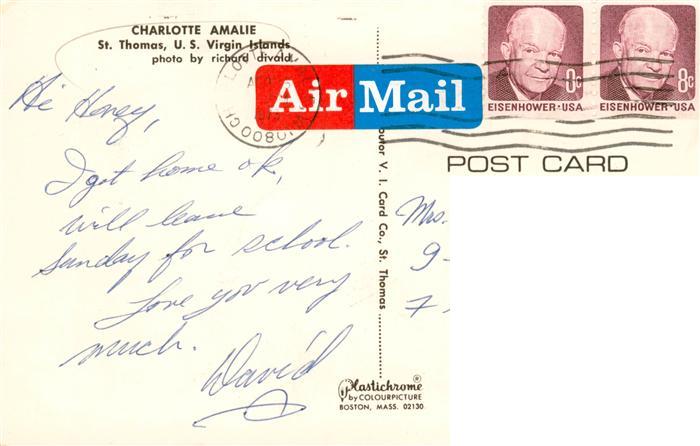 CHARLOTTE AMALIE
St. Thomas, U. S. Virgin Islands
photo by richard divald
Air Mail
8c
8c
EISENHOWER·USA
EISENHOWER·USA
POST CARD
Hi Honey,
I got home ok,
will leave
Sunday for school.
Love you very
much.
David
V. I. Card Co., St. Thomas
Mrs.
9-
7.
Plastichrome
by COLOURPICTURE
BOSTON, MASS. 02130